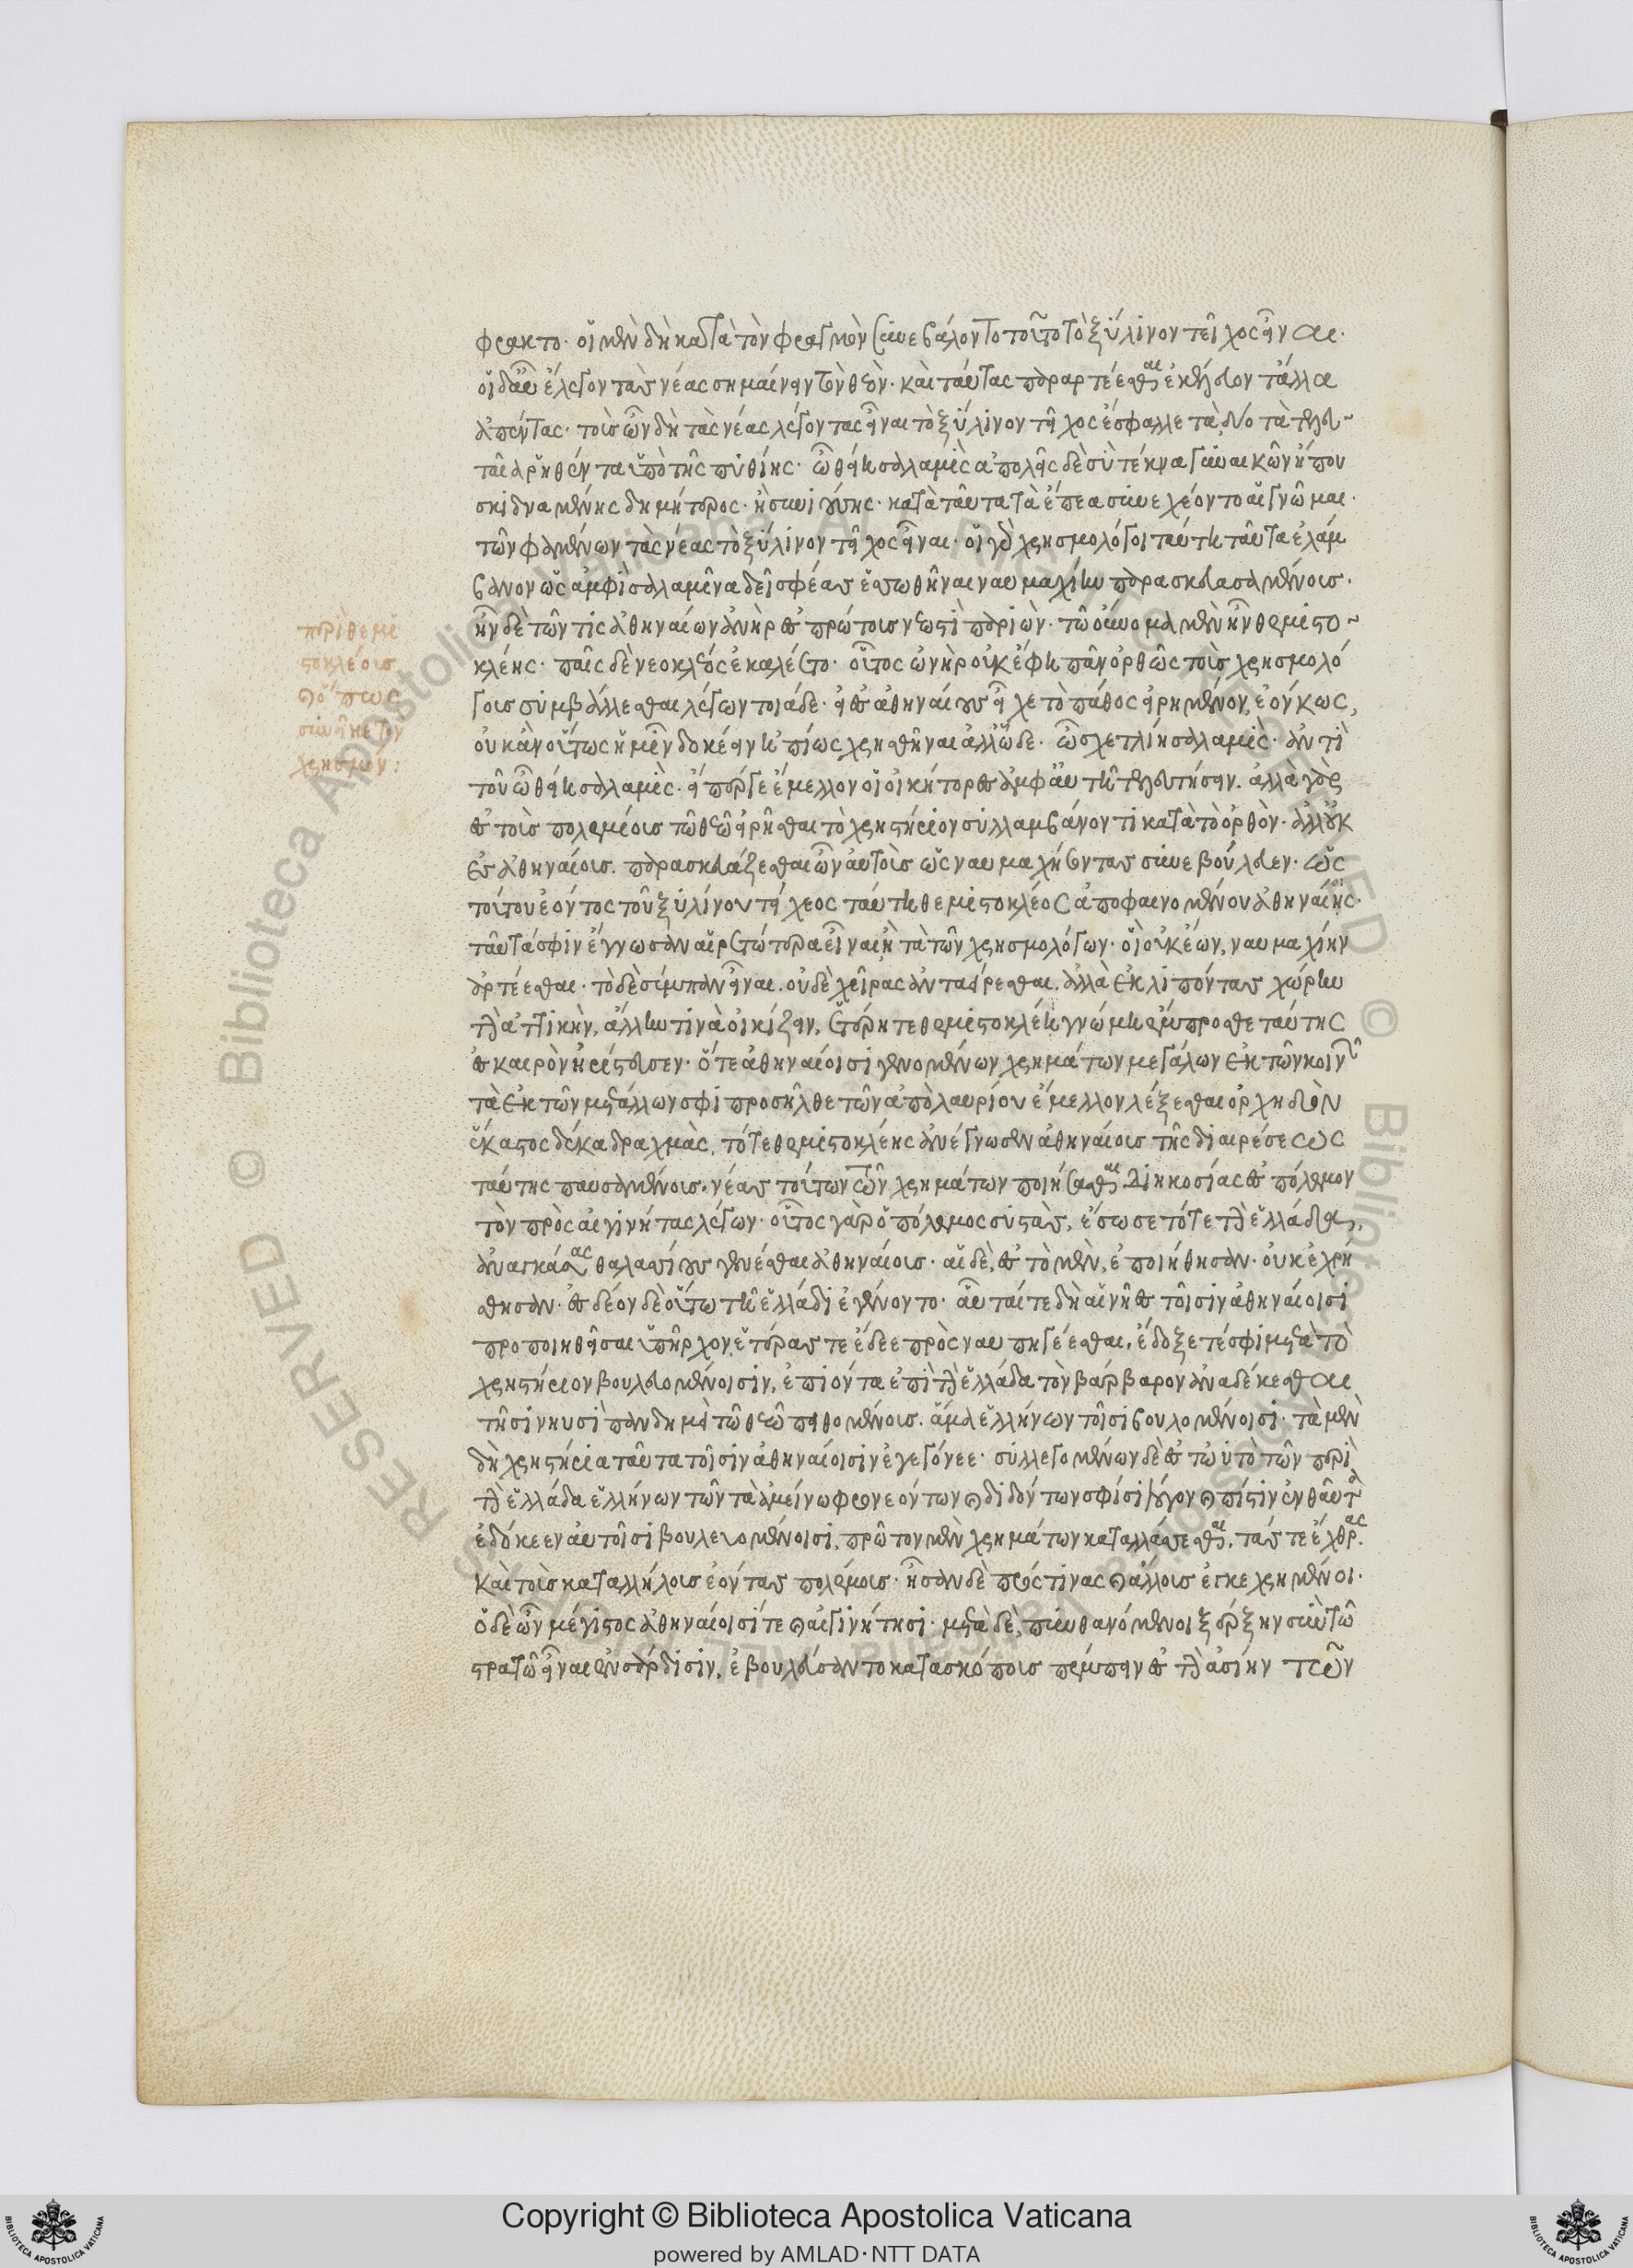 φρακτο· οἱ μὲν δὴ κατὰ τὸν φραγμὸν συνεβάλοντο τοῦτο τὸ ξύλινον τεῖχος εἶναι·
οἱ δ' αὖ ἔλεγον τὰς νέας σημαίνειν τὸν θεόν· καὶ ταύτας παραρτέεσθαι ἐκέλευον τἄλλα
ἀπέντας· τοὺς ὦν δὴ τὰς νέας λέγοντας εἶναι τὸ ξύλινον τεῖχος ἔσφαλλε τὰ δύο τὰ τελευ-
ταῖα ῥηθέντα ὑπὸ τῆς πυθίης· ὦ θείη σαλαμὶς ἀπολεῖς δὲ σὺ τέκνα γυναικῶν ἤ που
σκιδναμένης δημήτερος· ἢ συνιούσης· κατὰ ταῦτα τὰ ἔπεα συνεχέοντο αἱ γνῶμαι·
τῶν φαμένων τὰς νέας τὸ ξύλινον τεῖχος εἶναι· οἱ γὰρ χρησμολόγοι ταύτῃ ταῦτα ἐλάμ
βανον ὡς ἀμφὶ σαλαμῖνα δεῖ σφέας ἑσσωθῆναι ναυμαχίην παρασκευασαμένους·
ἦν δὲ τῶν τις ἀθηναίων ἀνὴρ ἐς πρώτους νεωστὶ παριών· τῷ οὔνομα μὲν ἦν θεμιστο-
κλέης· παῖς δὲ νεοκλέος ἐκαλέετο· οὗτος ὡνὴρ οὐκ ἔφη πᾶν ὀρθῶς τοὺς χρησμολό
γους συμβάλλεσθαι λέγων τοιάδε· εἰ ἐς ἀθηναίους εἶχε τὸ πάθος εἰρημένον ἐόν κως,
οὐκ ἂν οὕτως ἤ μιν δοκέειν ἠπίως χρησθῆναι ἀλλ' ὧδε· ὦ σχετλίη σαλαμίς· ἀντὶ
τοῦ ὦ θείη σαλαμίς· εἰ πέρ γε ἔμελλον οἱ οἰκήτορες ἀμφ' αὐτῇ τελευτήσειν. ἀλλὰ γὰρ
ἐς τοὺς πολεμίους τῷ θεῷ εἰρῆσθαι τὸ χρηστήριον συλλαμβάνοντι κατὰ τὸ ὀρθόν· ἀλλ' οὐκ
ἐς ἀθηναίους. παρασκευάζεσθαι ὦν αὐτοὺς ὡς ναυμαχήσοντας συνεβούλευεν· ὡς
τούτου ἐόντος τοῦ ξυλίνου τείχεος ταύτῃ θεμιστοκλέος ἀποφαινομένου ἀθηναίης·
ταῦτά σφιν ἔγνωσαν αἱρετώτερα εἶναι ἢ τὰ τῶν χρησμολόγων· οἳ οὐκ ἔων, ναυμαχίην
ἀρτέεσθαι· τὸ δὲ σύμπαν εἶναι. οὐδὲ χεῖρας ἀνταείρεσθαι. ἀλλὰ ἐκλιπόντας χώρην
τὴν ἀττικὴν, ἄλλην τινὰ οἰκίζειν, ἑτέρη τε θεμιστοκλέη γνώμη ἔμπροσθε ταύτης
ἐς καιρὸν ἠρίστευσεν· ὅτε ἀθηναίοισι γενομένων χρημάτων μεγάλων ἐκ τῶν κοινῷ
τὰ ἐκ τῶν μετάλλων σφι προσῆλθε τῶν ἀπὸ λαυρίου ἔμελλον λέξεσθαι ὀρχηδὸν
ἕκαστος δέκα δραχμὰς, τότε θεμιστοκλέης ἀνέγνωσεν ἀθηναίους τῆς διαιρέσεως
ταύτης παυσαμένους. νέας τούτων τῶν χρημάτων ποιήσασθαι διηκοσίας ἐς πόλεμον
τὸν πρὸς αἰγινήτας λέγων· οὗτος γὰρ ὁ πόλεμος συστὰς, ἔσωσε τότε τὴν ἑλλάδα,
ἀναγκάσας θαλασσίους γενέσθαι ἀθηναίους· αἱ δὲ, ἐς τὸ μὲν, ἐποιήθησαν· οὐκ ἐχρή
σθησαν· ἐς δέον δὲ οὕτω τῇ ἑλλάδι ἐγένοντο· αὗταί τε δὴ αἱ νῆες τοῖσιν ἀθηναίοισι
προποιηθεῖσαι ὑπῆρχον, ἑτέρας τε ἔδεε προς ναυπηγέεσθαι, ἔδοξε τέ σφι μετὰ τὸ
χρηστήριον βουλευομένοισιν, ἐπιόντα ἐπὶ τὴν ἑλλάδα τὸν βάρβαρον ἀναδέκεσθαι
τῇσι νηυσὶ πανδημὰ τῷ θεῷ πειθομένους. ἅμα ἑλλήνων τοῖσι βουλομένοισι· τὰ μὲν
δὴ χρηστήρια ταῦτα τοῖσιν ἀθηναίοισιν ἐγεγόνεε· συλλεγομένων δὲ ἐς τὠυτὸ τῶν περὶ
τὴν ἑλλάδα ἑλλήνων τῶν τὰ ἀμείνω φρονεόντων καὶ διδόντων σφίσι λόγον καὶ πίστιν ἐνθαῦτα
ἐδόκεεν αὐτοῖσι βουλευομένοισι, πρῶτον μὲν χρημάτων καταλλάσσεσθαι, τάς τε ἔχθρας.
Καὶ τοὺς κατ' ἀλλήλους ἐόντας πολέμους· ἦσαν δὲ πρός τινας καὶ ἄλλους ἐγκεχρημένοι·
ὁ δὲ ὦν μέγιστος ἀθηναίοισί τε καὶ αἰγινήτησι· μετὰ δὲ, πυνθανόμενοι ξέρξην σὺν τῷ
στρατῷ εἶναι ἐν σάρδισιν, ἐβουλεύσαντο κατασκόπους πέμπειν ἐς τὴν ἀσίην τῶν
περὶ θεμι
στοκλέους
καὶ ὅπως
συνῆκε τὸν
χρησμόν:
Copyright © Biblioteca Apostolica Vaticana
powered by AMLAD·NTT DATA